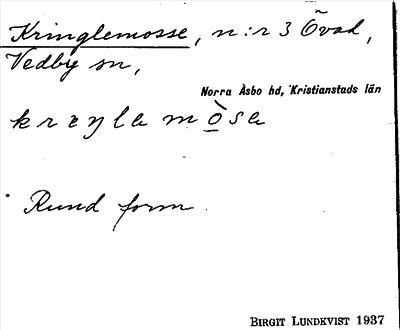 Kringlemosse, n:r 3 Övad,
Vedby sn,
Norra Åsbo hd, Kristianstads län
Rund form.
BIRGIT LUNDKVIST 1937